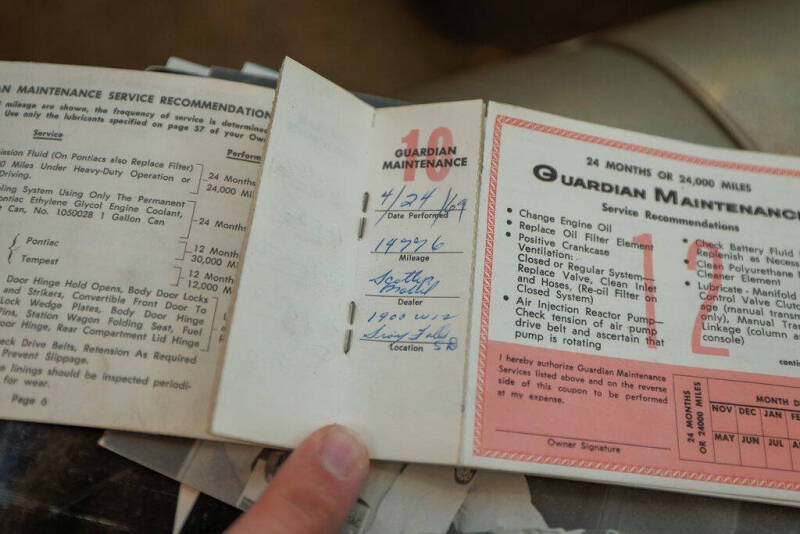 AN MAINTENANCE SERVICE RECOMMENDATION
mileage are shown, the frequency of service is determined
Use only the lubricants specified on page 57 of your Own
Service
Perform
ission Fluid (On Pontiacs also Replace Filter)
0 Miles Under Heavy-Duty Operation or
Driving.
24 Months
24,000 Mi
ling System Using Only The Permanent
ontiac Ethylene Glycol Engine Coolant,
Can, No. 1050028 1 Gallon Can
24 Months
Pontiac
12 Month
30,000 M
Tempest
12 Month
12,000 M
Door Hinge Hold Opens, Body Door Locks
and Strikers, Convertible Front Door To
Lock Wedge Plates, Body Door Hinge
Pins, Station Wagon Folding Seat, Fuel
Door Hinge, Rear Compartment Lid Hinge
24 Mo
eck Drive Belts, Retension As Required
Prevent Slippage.
e linings should be inspected periodi-
for wear.
Page 6
10
GUARDIAN
MAINTENANCE
4/24/69
Date Performed
19776
Mileage
Motel
Dealer
1900 W 12
Location
SD
24 MONTHS OR 24,000 MILES
GUARDIAN MAINTENANCE
Service Recommendations
12
• Change Engine Oil
• Replace Oil Filter Element
• Positive Crankcase
Ventilation:
Closed or Regular System—
Replace Valve, Clean Inlet
and Hoses, (Re-oil Filter on
Closed System)
• Air Injection Reactor Pump—
Check tension of air pump
drive belt and ascertain that
pump is rotating
• Check Battery Fluid
Replenish as Necess
• Clean Polyurethane
Cleaner Element
• Lubricate - Manifold
Control Valve Clutc
age (manual transm
only). Manual Trans
Linkage (column a
console)
conti
I hereby authorize Guardian Maintenance
Services listed above and on the reverse
side of this coupon to be performed
at my expense.
Owner Signature
24 MONTHS
OR 24000 MILES
MONTH D
NOV DEC JAN FE
MAY JUN JUL A